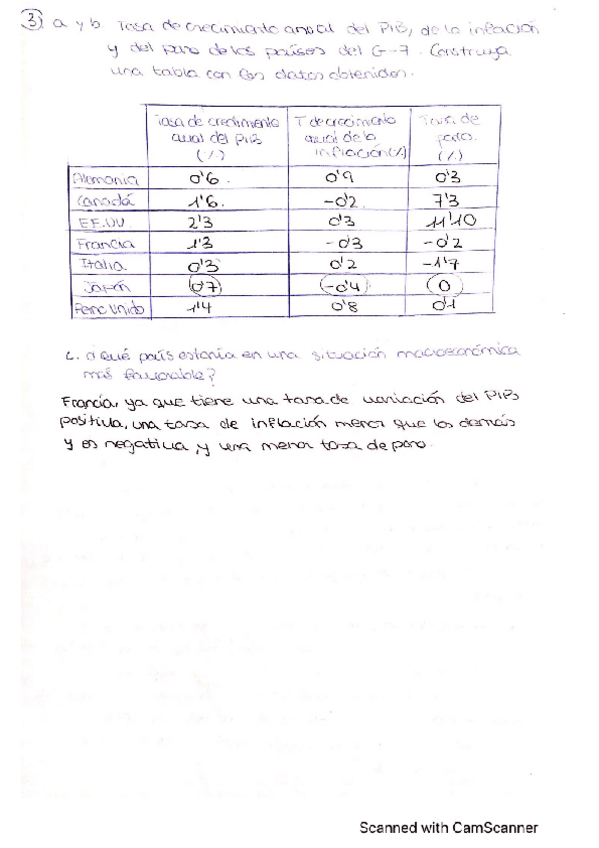 3) a y b Tasa de crecimiento anual del PIB, de la inflación
y del paro de los países del G-7. Construya
una tabla con los datos obtenidos.
Tasa de crecimiento anual del PIB (%) | T de crecimiento anual de la inflación (%) | Tasa de paro. (%)
Alemania | 0'6. | 0'9 | 0'3
Canadá | 1'6. | -0'2. | 7'3
EE.UU. | 2'3 | 0'3 | 11'10
Francia | 1'3 | -0'3 | -0'2
Italia. | 0'3 | 0'2 | -1'7
Japón | 0'7 | -0'4 | 0
Reino Unido | 1'4 | 0'8 | 0'1
c. ¿Qué país estaría en una situación macroeconómica
más favorable?
Francia, ya que tiene una tasa de variación del PIB
positiva, una tasa de inflación menor que los demás
y es negativa, y una menor tasa de paro.
Scanned with CamScanner